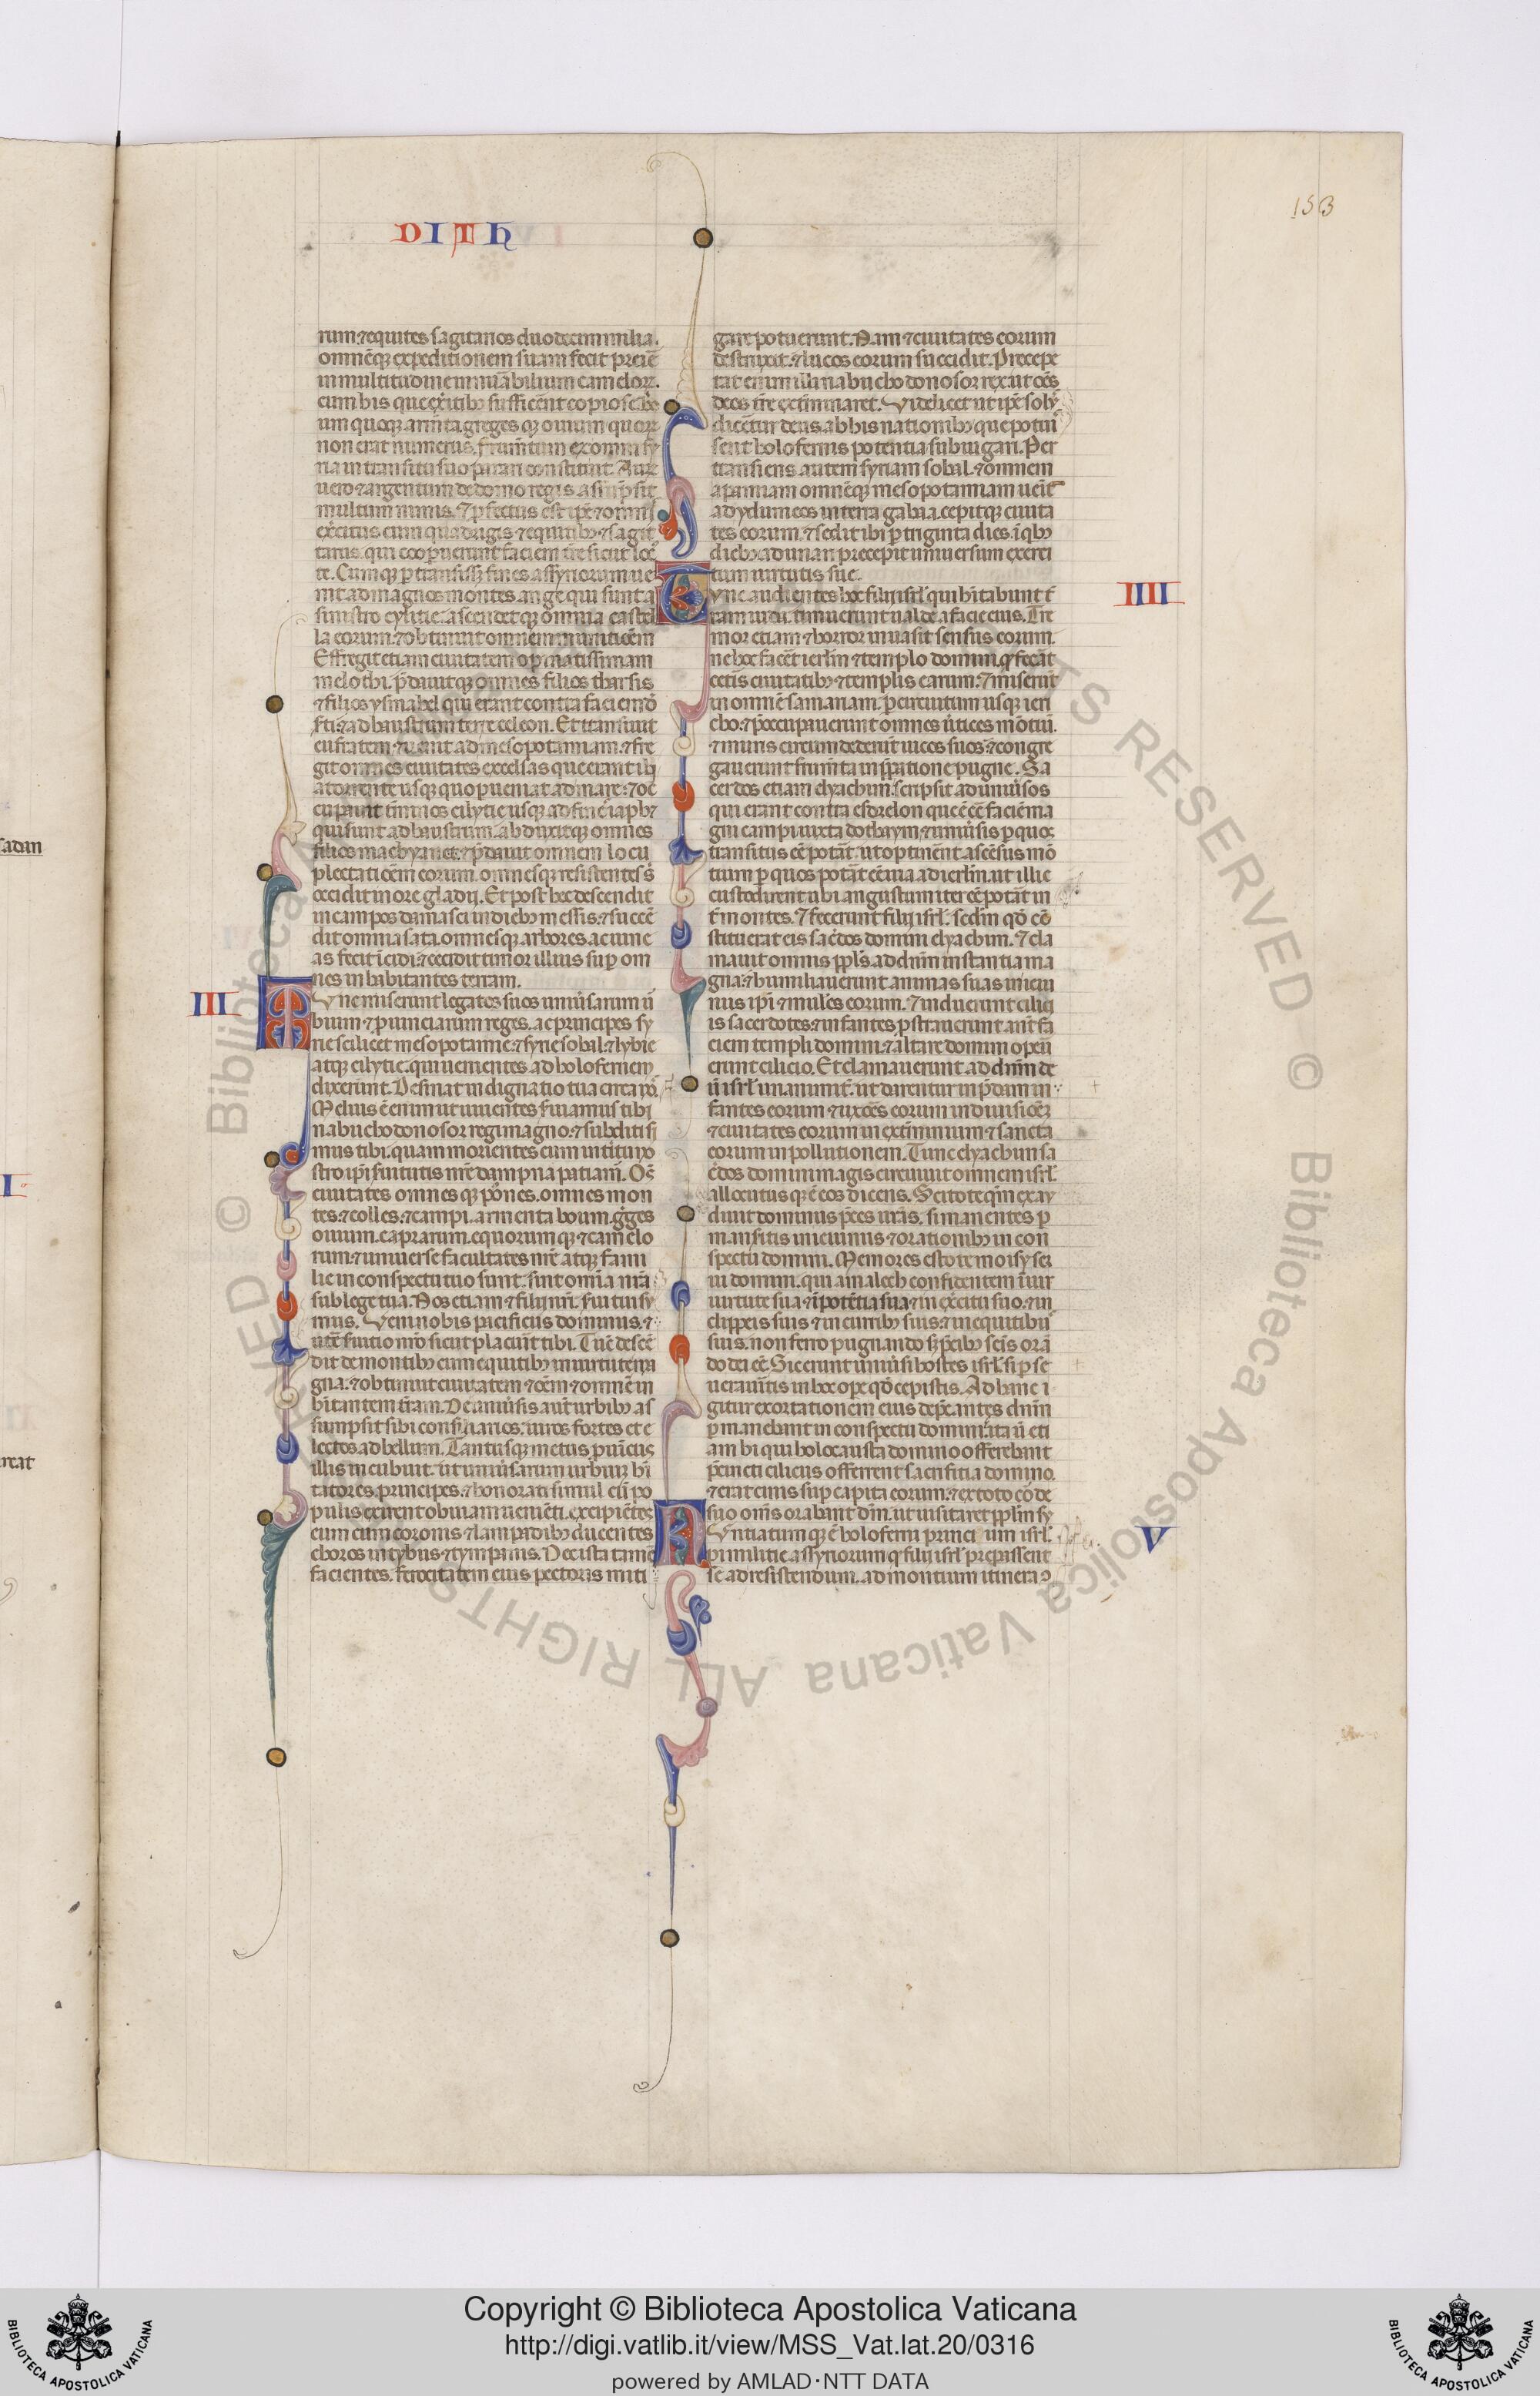 153
DITH
rum. ⁊ equites sagitarios duodecim milia.
omnẽqȝ expeditionem suam fecit preire
in multitudinem inumerabilium camelorꝝ.
cum his que
um quoqȝ armta greges qȝ ouium quorꝝ
non erat numerus. frumtum ex omni sy
ria in transitu suo parari constituit. Aurꝝ
uero ⁊ argentum de domo regis asumpsit
multum nimis. ⁊ ꝓfectus est ipẽ ⁊ omnis
exercitus cum quadrigis ⁊ equitibȝ ⁊ sagit
tariis. qui cooperuerunt faciem tre sicut loc
te. Cumqȝ ꝑtransisset fines assyriorum ue
nit ad magnos montes ange qui sunt a
sinistro cylitie. ascenditqȝ omnia castel
la eorum. ⁊ obtinuit omnem munitiõem
Effregit etiam ciuitatem opinatissimam
melothi. p̃dauitqȝ omnes filios tharsis
⁊ filios ysmahel qui erant contra faciem
⁊ ad haustrum terre celeon. Et transiuit
eufratem. ⁊ uenit ad mesopotamiam. ⁊ fre
git omnes ciuitates excelsas que erant ibi
a torrente usque quo perueniat ad mare. ⁊ oc
cupauit tminos cilytie usqȝ ad fines iaphet
qui sunt ad haustrum. abduxitqȝ omnes
filios madyanet. ⁊ p̃dauit omnem locu
plectatiõem eorum. omnesqȝ resistentes s
occidit in ore gladij. Et post hec descendit
in campos damasci in diebȝ messis. ⁊ succẽ
dit omnia sata. omnesqȝ arbores ac uine
as fecit icidi. ⁊ cecidit timor illius suꝑ om
nes inhabitantes terram.
III
Tunc miserunt legatos suos uniũsarum u
bium ⁊ ꝓuinciarum reges. ac principes sy
rie scilicet mesopotamie. ⁊ syrie sobal. ⁊ lybie
atqȝ cilytie. qui uenientes ad holofernem
dixerunt. Desinat indignatio tua circa nõ.
Melius ẽ enim ut uiuentes seruiamus tibi
nabuchodonosor regi magno. ⁊ subditi si
mus tibi. quam morientes cum interitu no
stro ipi seruitutis nrẽ dampna patiam̃. Oĩs
ciuitates omnesqȝ possiones. omnes mon
tes. ⁊ colles. ⁊ campi. armenta boum. greges
ouium. caprarum. equorumqȝ ⁊ camelo
rum. ⁊ uniuerse facultates nrẽ atqȝ fami
lie in conspectu tuo sunt. sint omnia nrã
sub lege tua. Nos etiam ⁊ filij nrĩ. serui tui su
mus. Veni nobis pacificus dominus. ⁊
utere seruitio nro sicut placuerit tibi. Tũc descẽ
dit de montibȝ cum equitibȝ in uirtute ma
gna. ⁊ obtinuit ciuitatem ⁊ oẽm ⁊ omnẽ in
hitantem trãm. De uniũsis aut urbibȝ as
sumpsit sibi consiliarios. uiros fortes et e
lectos ad bellum. Tantusqȝ metus ꝓuinciis
illis incubuit. ut uniũsarum urbium hi
tatores. principes. ⁊ honorati simul cũ po
pulis exirent obuiam uenieti. excipiẽtes
eum cum coronis ⁊ lampadibȝ. ducentes
choros in tybiis ⁊ tympanis. Nec ista tamẽ
facientes. ferocitatem eius pectoris miti
gare potuerunt. Nam ⁊ ciuitates eorum
destruxit. ⁊ lucos eorum succidit. Precepe
rat enim illi nabuchodonosor rex. ut oẽs
deos trẽ exterminaret. Videlicet ut ipẽ solꝯ
diceretur deus. ab his nationibȝ que potui
sent holofernis potentia subiugari. Per
transiens autem syriam sobal. ⁊ omnem
apamiam omnẽqȝ mesopotamiam uenit
ad ydumeos in terra gabaa. cepitqȝ ciuita
tes eorum. ⁊ sedit ibi ꝑ triginta dies. i qbȝ
diebȝ adunari precepit uniuersum exerci
tum uirtutis sue.
IIII
Tunc audientes hoc filij isrl̃ qui hitabunt t
ram iuda. timuerunt ualde a facie eius. Tre
mor etiam ⁊ horror inuasit sensus eorum.
ne hoc faceret ierl̃m ⁊ templo domini. qd fecerat
ceteris ciuitatibȝ ⁊ templis earum. ⁊ miserunt
in omnẽ samariam. ꝑ circuitum usqȝ ieri
cho. ⁊ p̃occupauerunt omnes utices mõtiũ.
⁊ muris circumdederunt uicos suos. ⁊ congre
gauerunt frumta in p̃paratione pugne. Sa
cerdos etiam elyachim. scripsit ad uniũsos
qui erant contra esdrelon que ẽ cõtra faciẽ ma
gni campi iuxta dothaym. ⁊ uniũsis ꝑ quos
transitus eẽ poterat. ut optinerent ascẽsus mõ
tium ꝑ quos poterat eẽ uia ad ierl̃m. ut illic
custodirent ubi angustum iter eẽ poterat in
t montes. ⁊ fecerunt filij isrl̃. scdm qd cõ
stituerat eis sacerdos domini elyachim. ⁊ cla
mauit omnis ppls ad dnm instantia ma
gna. ⁊ humiliauerunt animas suas in ieiu
niis ipi ⁊ mulẽs eorum. ⁊ induerunt cilici
is sacerdotes. ⁊ infantes ꝓstrauerunt aut fa
ciem templi domini. ⁊ altare domini operu
erunt cilicio. Et clamauerunt ad dnm de
ũ isrl̃ unanimit. ut darentur in p̃dam in
fantes eorum. ⁊ uxores eorum in diuisiõeȝ
⁊ ciuitates eorum in exterminium. ⁊ sancta
eorum in pollutionem. Tunc elyachim sa
cerdos domini magis circuiuit omnem isrl̃
allocutusqȝ ẽ eos dicens. Scitote qm̃ exau
diuit dominus preces urãs. si manentes ꝑ
manseritis in ieiuniis ⁊ orationibȝ in con
spectu domini. Memores estote moisy ser
ui domini. qui amalech confidentem i uir
uirtute sua. ⁊ i potentia sua. ⁊ in exercitu suo. ⁊ in
clippeis suis ⁊ in curribȝ suis. ⁊ in equitibȝ
suis. non ferro pugnando sȝ precibȝ scis orã
do deiecit. Sic erunt uniũsi hostes isrl̃. si ꝑse
ueraueritis in hoc oꝑe. qd cepistis. Ad hanc i
gitur exortationem eius deprecantes dnm
ꝑmanebant in conspectu domini. ita ut eti
am hi qui holocausta domino offerebant
precincti ciliciis offerrent sacrifitia domino.
⁊ erat cinis suꝑ capita eorum. ⁊ ex toto corde
suo omẽs orabant dm. ut uisitaret pplm sȳ
um isrl̃.
V
Nuntiatumqȝ ẽ holoferni princi
pi militie assyriorum qd filij isrl̃ prepassent
se ad resistendum. ac montium itinera ɔ
sadan
I
reat
Copyright © Biblioteca Apostolica Vaticana
http://digi.vatlib.it/view/MSS_Vat.lat.20/0316
powered by AMLAD·NTT DATA
BIBLIOTECA APOSTOLICA VATICANA
BIBLIOTECA APOSTOLICA VATICANA
© Biblioteca Apostolica Vaticana ALL RIGHTS RESERVED © Biblioteca Apostolica Vaticana ALL RIGHTS RESERVED